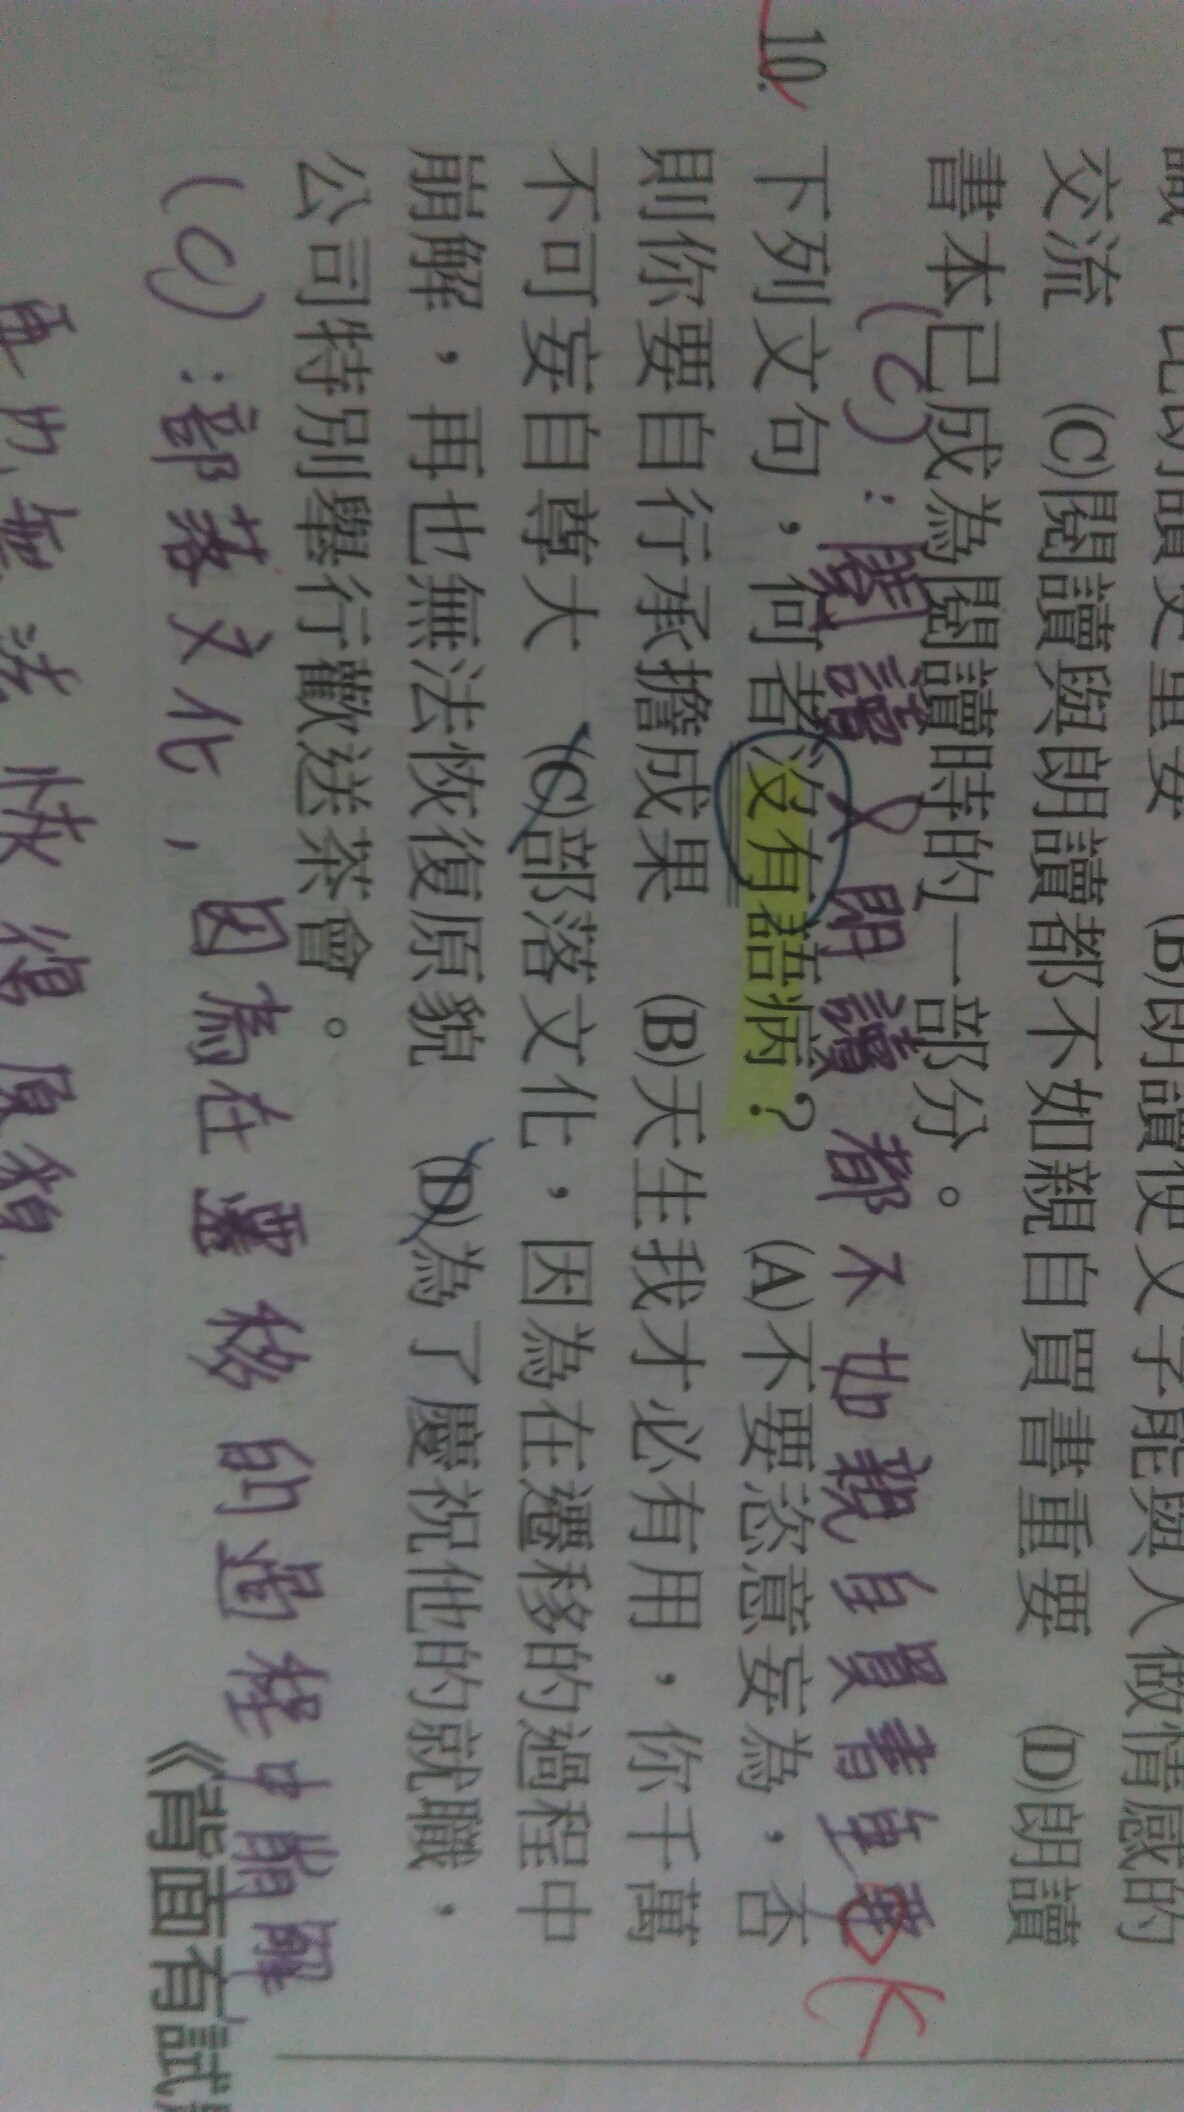 比朗讀更重要 (B)朗讀使文字能與人做情感的
交流 (C)閱讀與朗讀都不如親自買書重要 (D)朗讀
書本已成為閱讀時的一部分。
(C):閱讀又朗讀都不如親自買書重要
10. 下列文句,何者沒有語病? (A)不要恣意妄為,否
則你要自行承擔成果 (B)天生我才必有用,你千萬
不可妄自尊大 (C)部落文化,因為在遷移的過程中
崩解,再也無法恢復原貌 (D)為了慶祝他的就職,
公司特別舉行歡送茶會。
(C):部落文化,因為在遷移的過程中崩解
再也無法恢復原貌
《背面有試